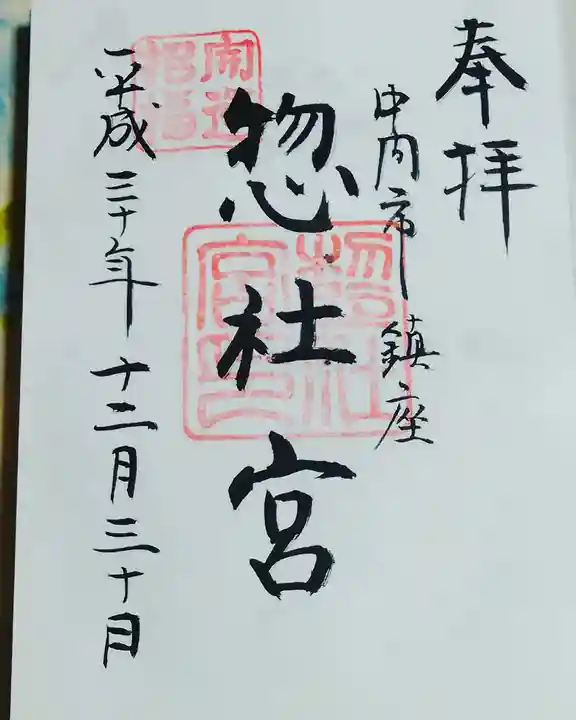 奉拝
中間市鎮座
惣社宮
惣社宮印
開運招福
平成三十年十二月三十日